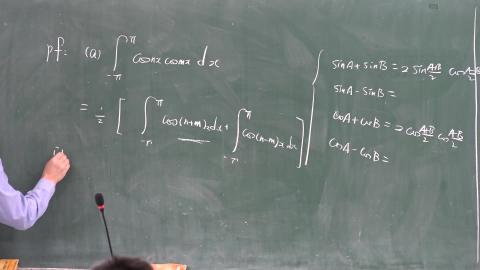 pf: (a) ∫_{-π}^{π} cosnx cosmx dx
= 1/2 [ ∫_{-π}^{π} cos(n+m)xdx + ∫_{-π}^{π} cos(n-m)xdx ]
sinA + sinB = 2 sin (A+B)/2 cos (A-B)/2
sinA - sinB =
cosA + cosB = 2 cos (A+B)/2 cos (A-B)/2
cosA - cosB =